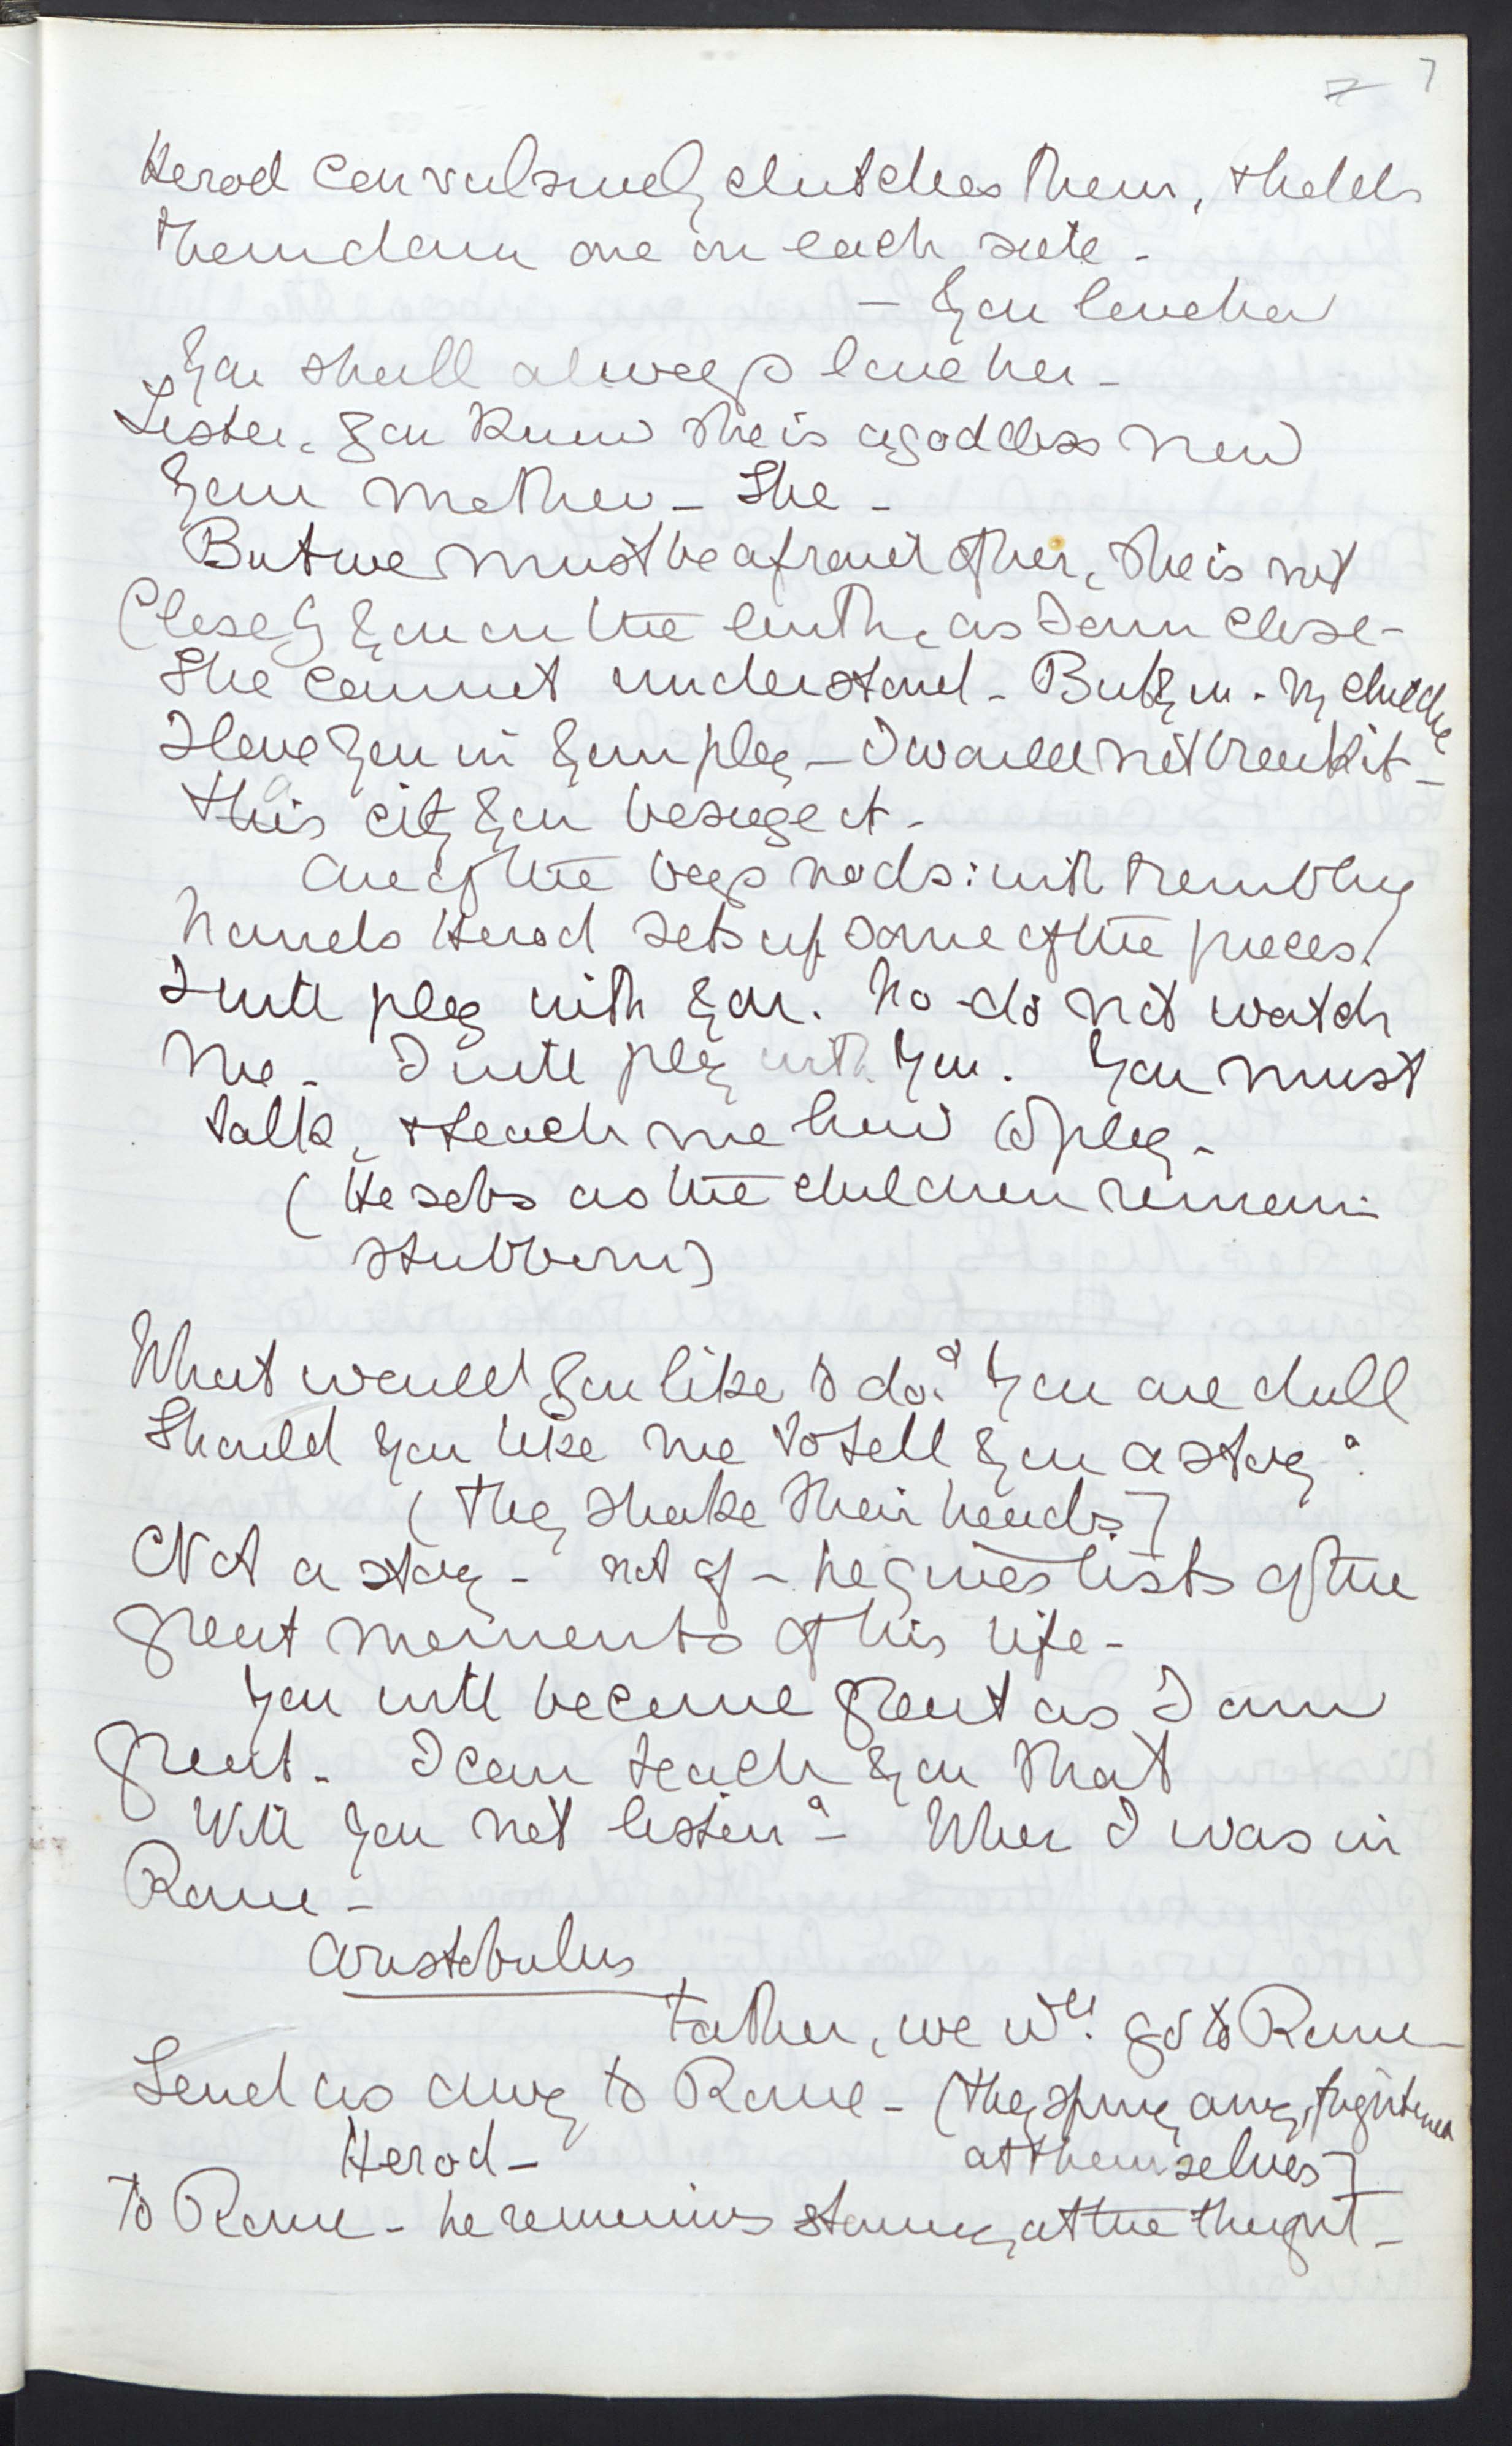 7 7
Herod convulsively clutches them, & holds
them down one on each side -
- You love her
You shall always love her -
Listen, you know she is a goddess now
Your mother - She -
But we must be afraid of her, she is not
close by you on the earth, as I am close -
She cannot understand - But you - My children
I love you in your play - I would not break it -
this city you besiege it -
One of the boys nods: with trembling
hands Herod sets up some of the pieces.
I will play with you. No - do not watch
me - I will play with you. You must
talk, & teach me how to play -
(He sobs as the children remain
stubborn)
What would you like to do? You are dull
Should you like me to tell you a story?
(They shake their heads)
Not a story - not of - he gives lists of the
great moments of his life -
You will become great as I am
great - I can teach you that
Will you not listen? - When I was in
Rome -
Aristobulus
Father, we wd. go to Rome -
Send us away to Rome - (they spring away, frightened
Herod - at themselves)
To Rome - he remains staring at the thought -